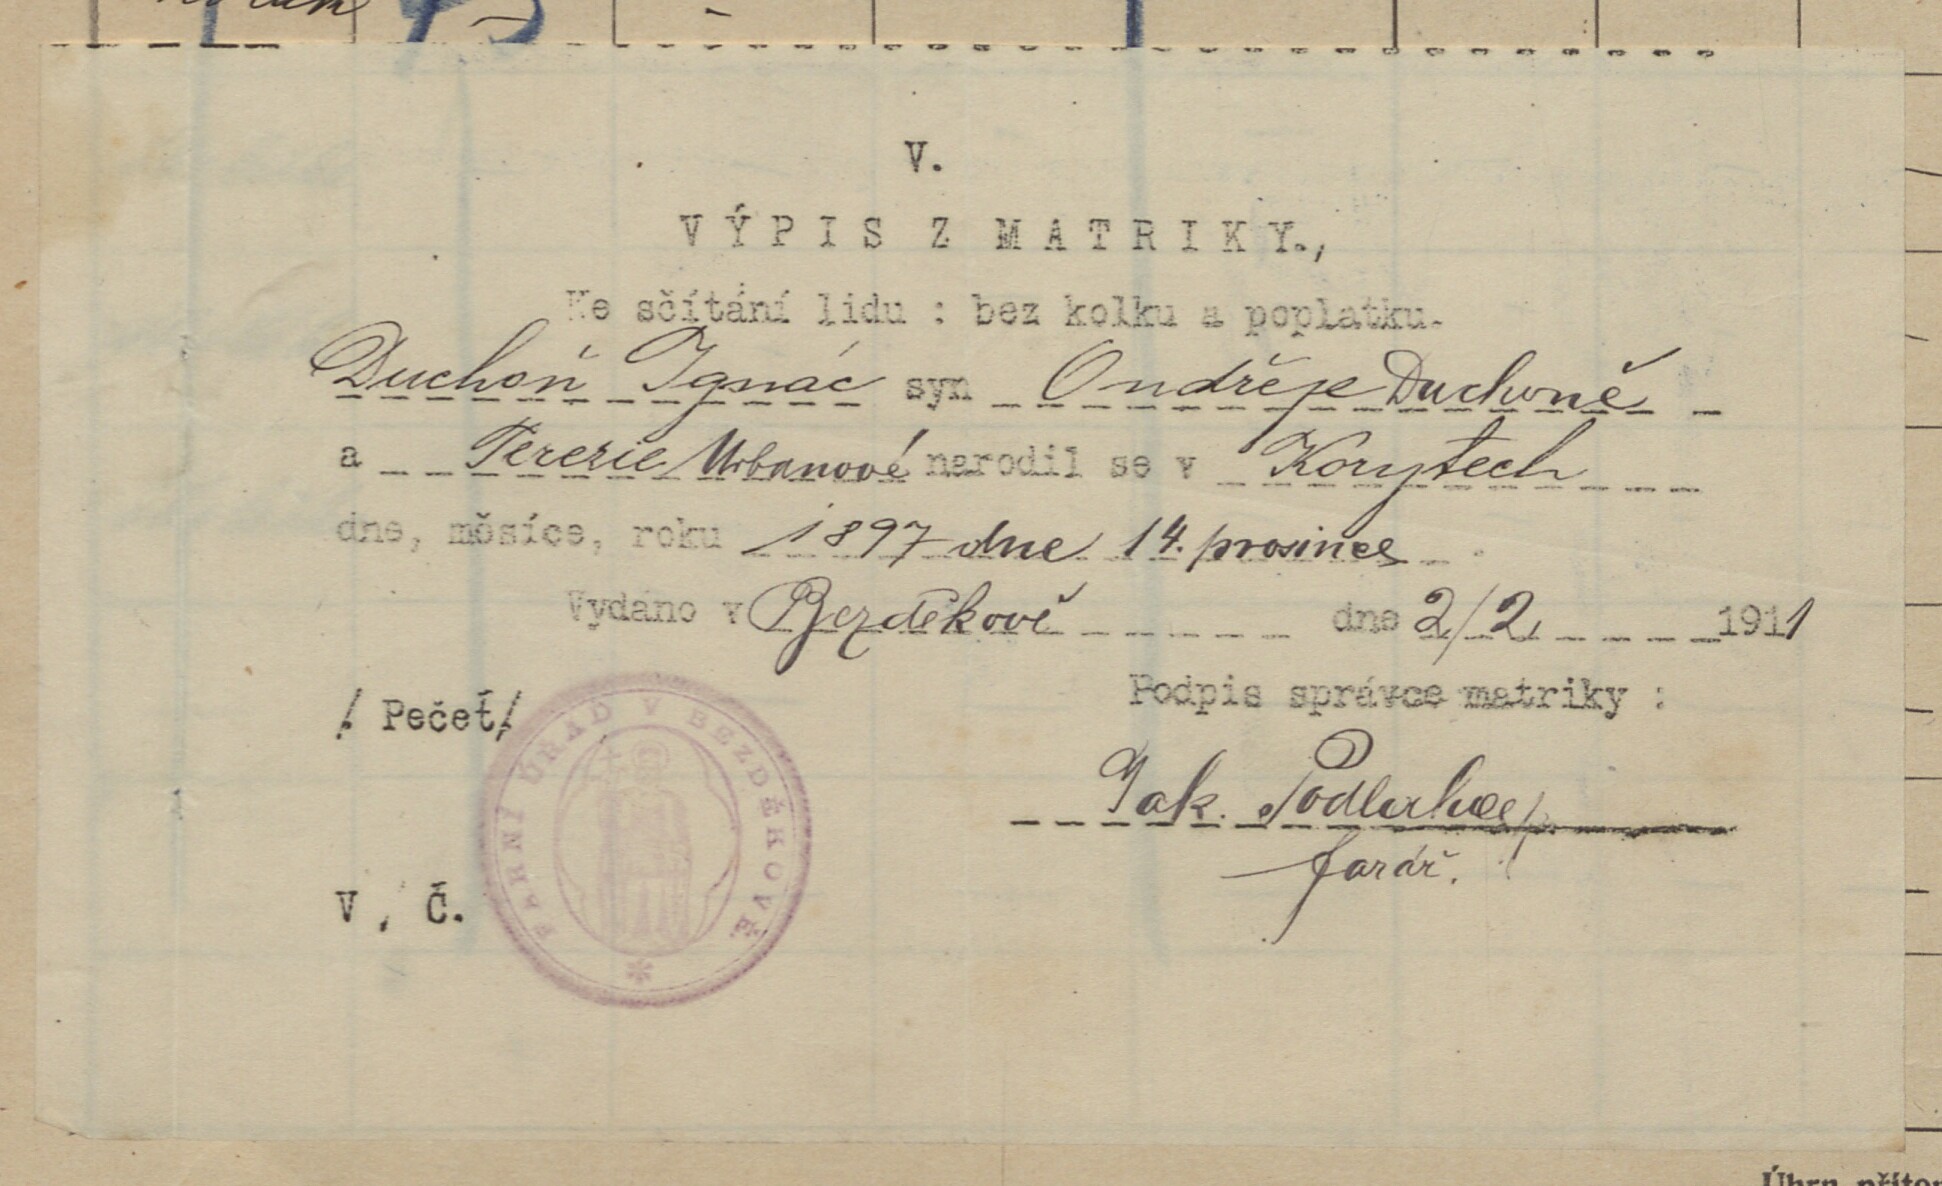 V.
VÝPIS Z MATRIKY.,
Ke sčítání lidu : bez kolku a poplatku.
Duchoň Ignác syn Ondřeje Duchoně
a Terezie Urbanové narodil se v Korytech
dne, měsíce, roku 1897 dne 14. prosince
Vydáno v Bezděkově dne 2/2 1911
Podpis správce matriky :
/ Pečeť/
FARNÍ ÚŘAD V BEZDĚKOVĚ
Jak.
farář.
V, Č.
Úhrn